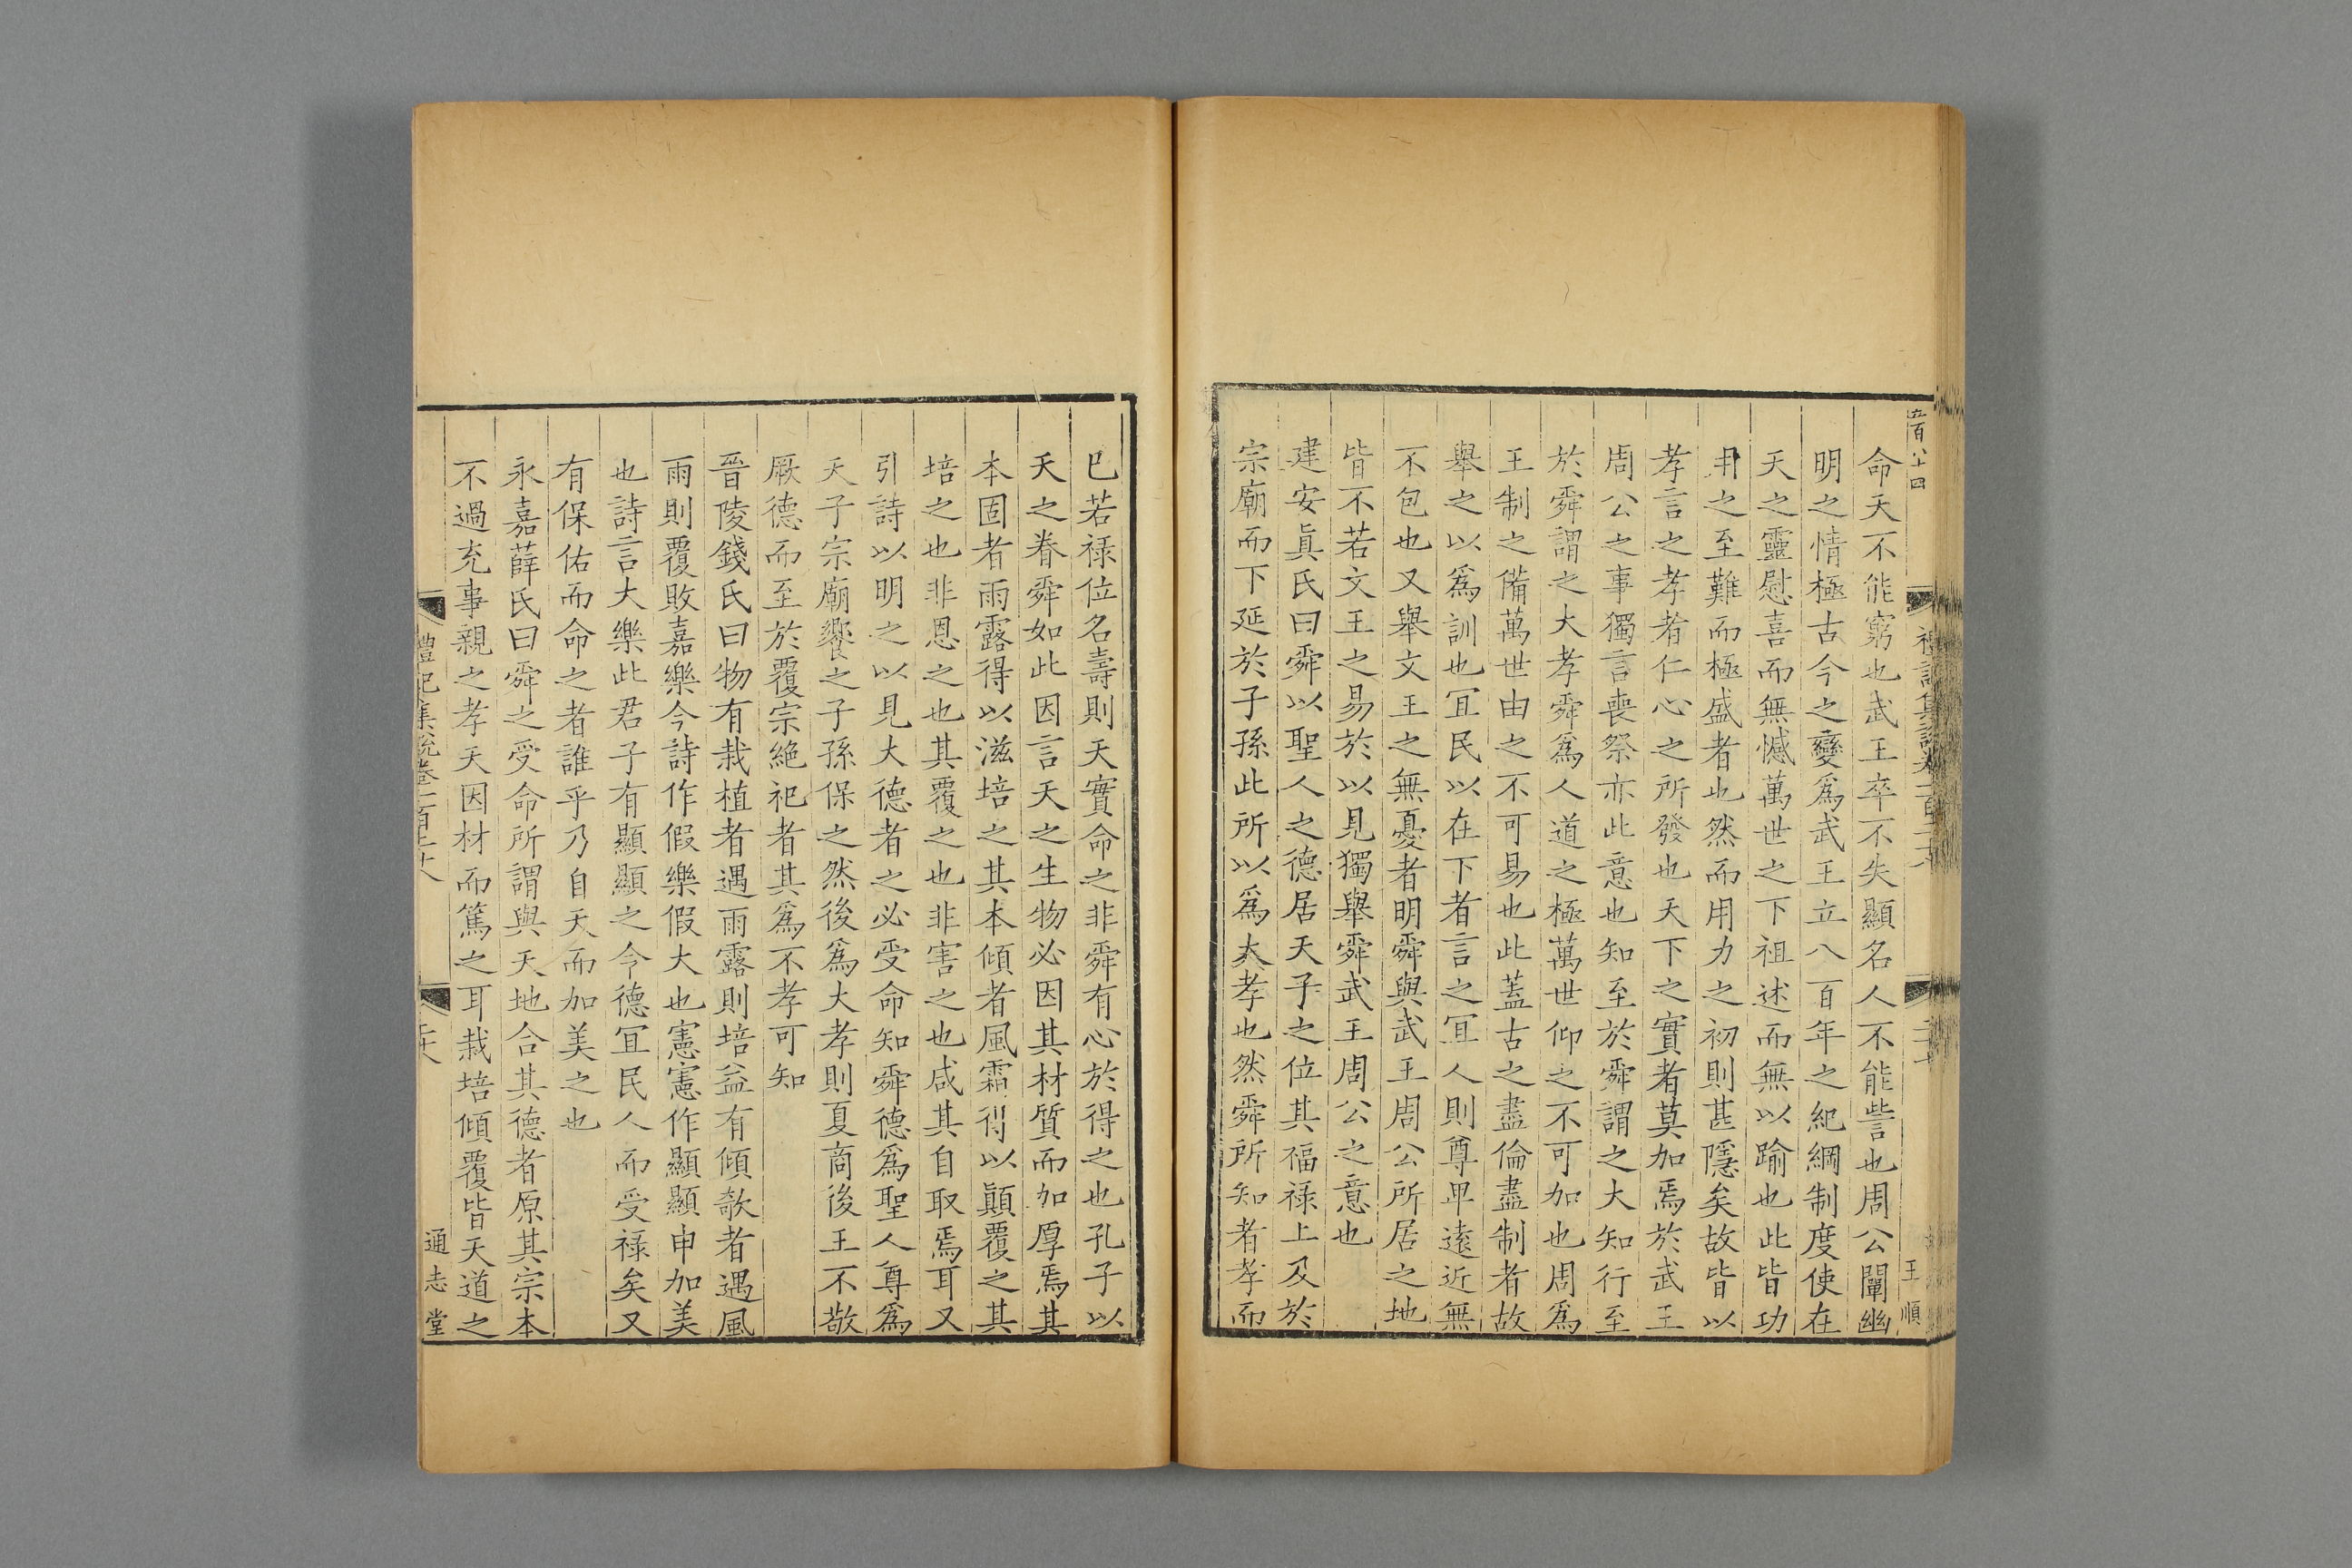 命天不能窮也武王卒不失顯名人不能訾也周公闡幽
明之情極古今之變爲武王立八百年之紀綱制度使在
天之靈慰喜而無憾萬世之下祖述而無以踰也此皆功
用之至難而極盛者也然而用力之初則甚隱矣故皆以
孝言之孝者仁心之所發也天下之實者莫加焉於武王
周公之事獨言喪祭亦此意也知至於舜謂之大知行至
於舜謂之大孝舜爲人道之極萬世仰之不可加也周爲
王制之備萬世由之不可易也此蓋古之盡倫盡制者故
舉之以爲訓也冝民以在下者言之冝人則尊卑遠近無
不包也又舉文王之無憂者明舜與武王周公所居之地
皆不若文王之易於以見獨舉舜武王周公之意也
建安眞氏曰舜以聖人之德居天子之位其福禄上及於
宗廟而下延於子孫此所以爲大孝也然舜所知者孝而
王順
巳若禄位名壽則天實命之非舜有心於得之也孔子以
天之眷舜如此因言天之生物必因其材質而加厚焉其
本固者雨露得以滋培之其本傾者風霜得以顛覆之其
培之也非恩之也其覆之也非害之也咸其自取焉耳又
引詩以明之以見大德者之必受命知舜德爲聖人尊爲
天子宗廟饗之子孫保之然後爲大孝則夏商後王不敬
厥德而至於覆宗絶祀者其爲不孝可知
晉陵錢氏曰物有栽植者遇雨露則培益有傾欹者遇風
雨則覆敗嘉樂今詩作假樂假大也憲憲作顯顯申加美
也詩言大樂此君子有顯顯之令德冝民人而受禄矣又
有保佑而命之者誰乎乃自天而加美之也
永嘉薛氏曰舜之受命所謂與天地合其德者原其宗本
不過充事親之孝天因材而篤之耳栽培傾覆皆天道之
通志堂